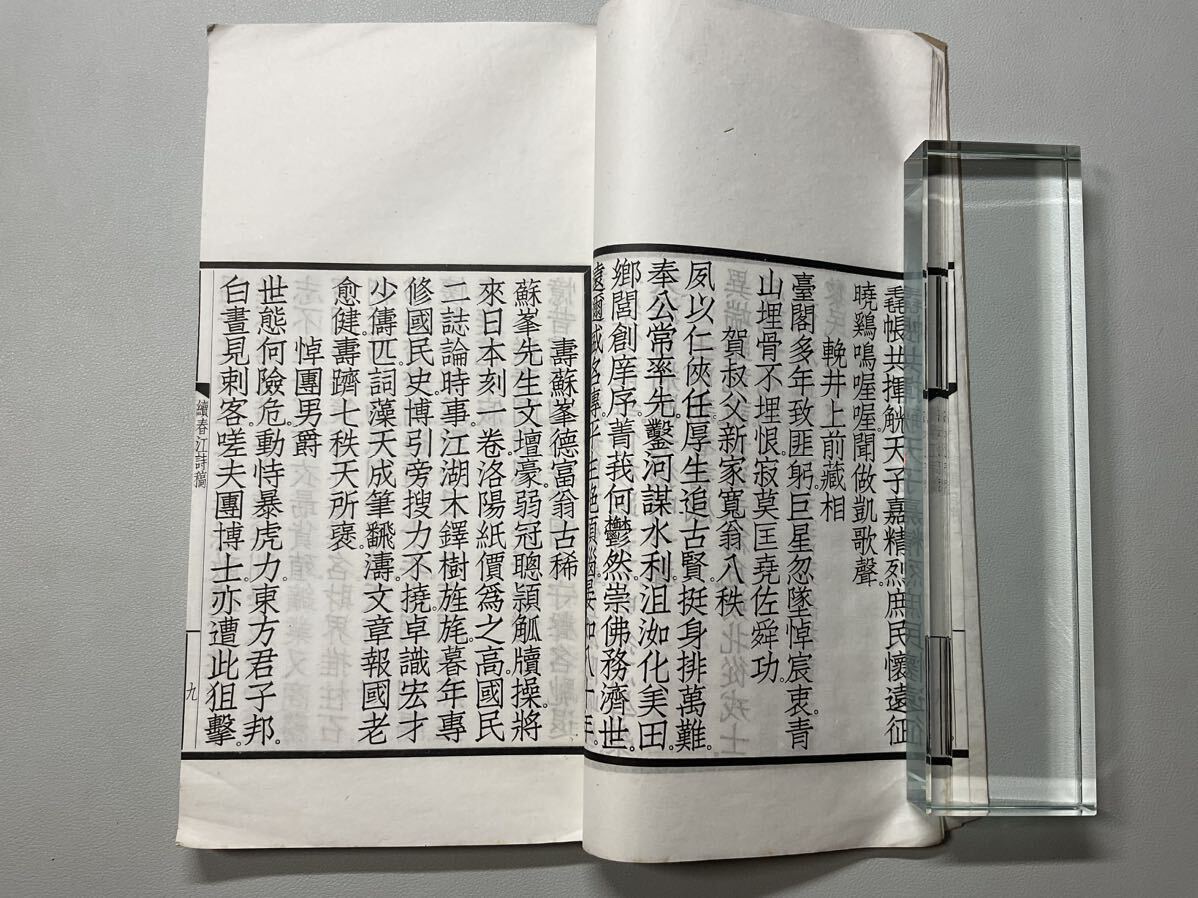 毳帳共揮觥天子嘉精烈庶民懷遠征
曉鷄鳴喔喔聞做凱歌聲
輓井上前藏相
臺閣多年致匪躬巨星忽墜悼宸衷青
山埋骨不埋恨寂莫匡堯佐舜功
賀叔父新家寬翁八秩
夙以仁俠任厚生追古賢挺身排萬難
奉公常率先鑿河謀水利沮洳化美田
鄉閭創庠序菁莪何鬱然崇佛務濟世
遠
壽蘇峯德富翁古稀
蘇峯先生文壇豪弱冠聰頴觚牘操將
來日本刻一卷洛陽紙價爲之高國民
二誌論時事江湖木鐸樹旌旄暮年專
修國民史博引旁搜力不撓卓識宏才
少儔匹詞藻天成筆飜濤文章報國老
愈健壽躋七秩天所襃
悼團男爵
世態何險危動恃暴虎力東方君子邦
白晝見刺客嗟夫團博士亦遭此狙擊
續春江詩稿
九